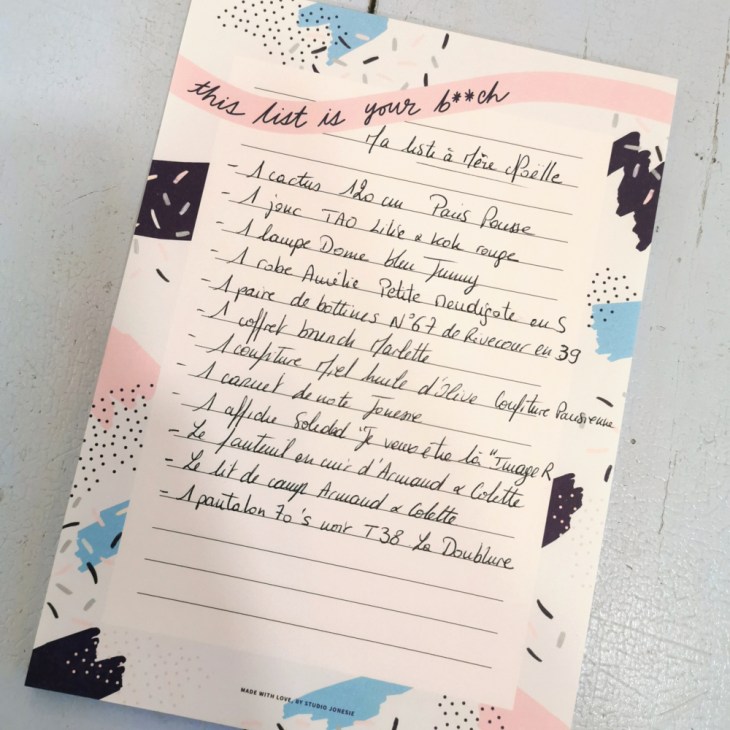 this list is your b**ch
Ma liste à Mère Noëlle
- 1 cactus 120 cm Paris Pousse
- 1 jonc TAO Likie & Kok rouge
- 1 lampe Dome bleu Jummy
- 1 robe Amélie Petite Mendigote en S
- 1 paire de bottines N°67 de Rivecour en 39
- 1 coffret brunch Marlette
- 1 confiture Miel huile d'Olive Confiture Parisienne
- 1 carnet de note Jonesie
- 1 affiche Soledad "Je veux être là" Image R
- Le fauteuil en cuir d'Armand & Colette
- Le lit de camp Armand & Colette
- 1 pantalon 70's noir T38 La Doublure
MADE WITH LOVE, BY STUDIO JONESIE